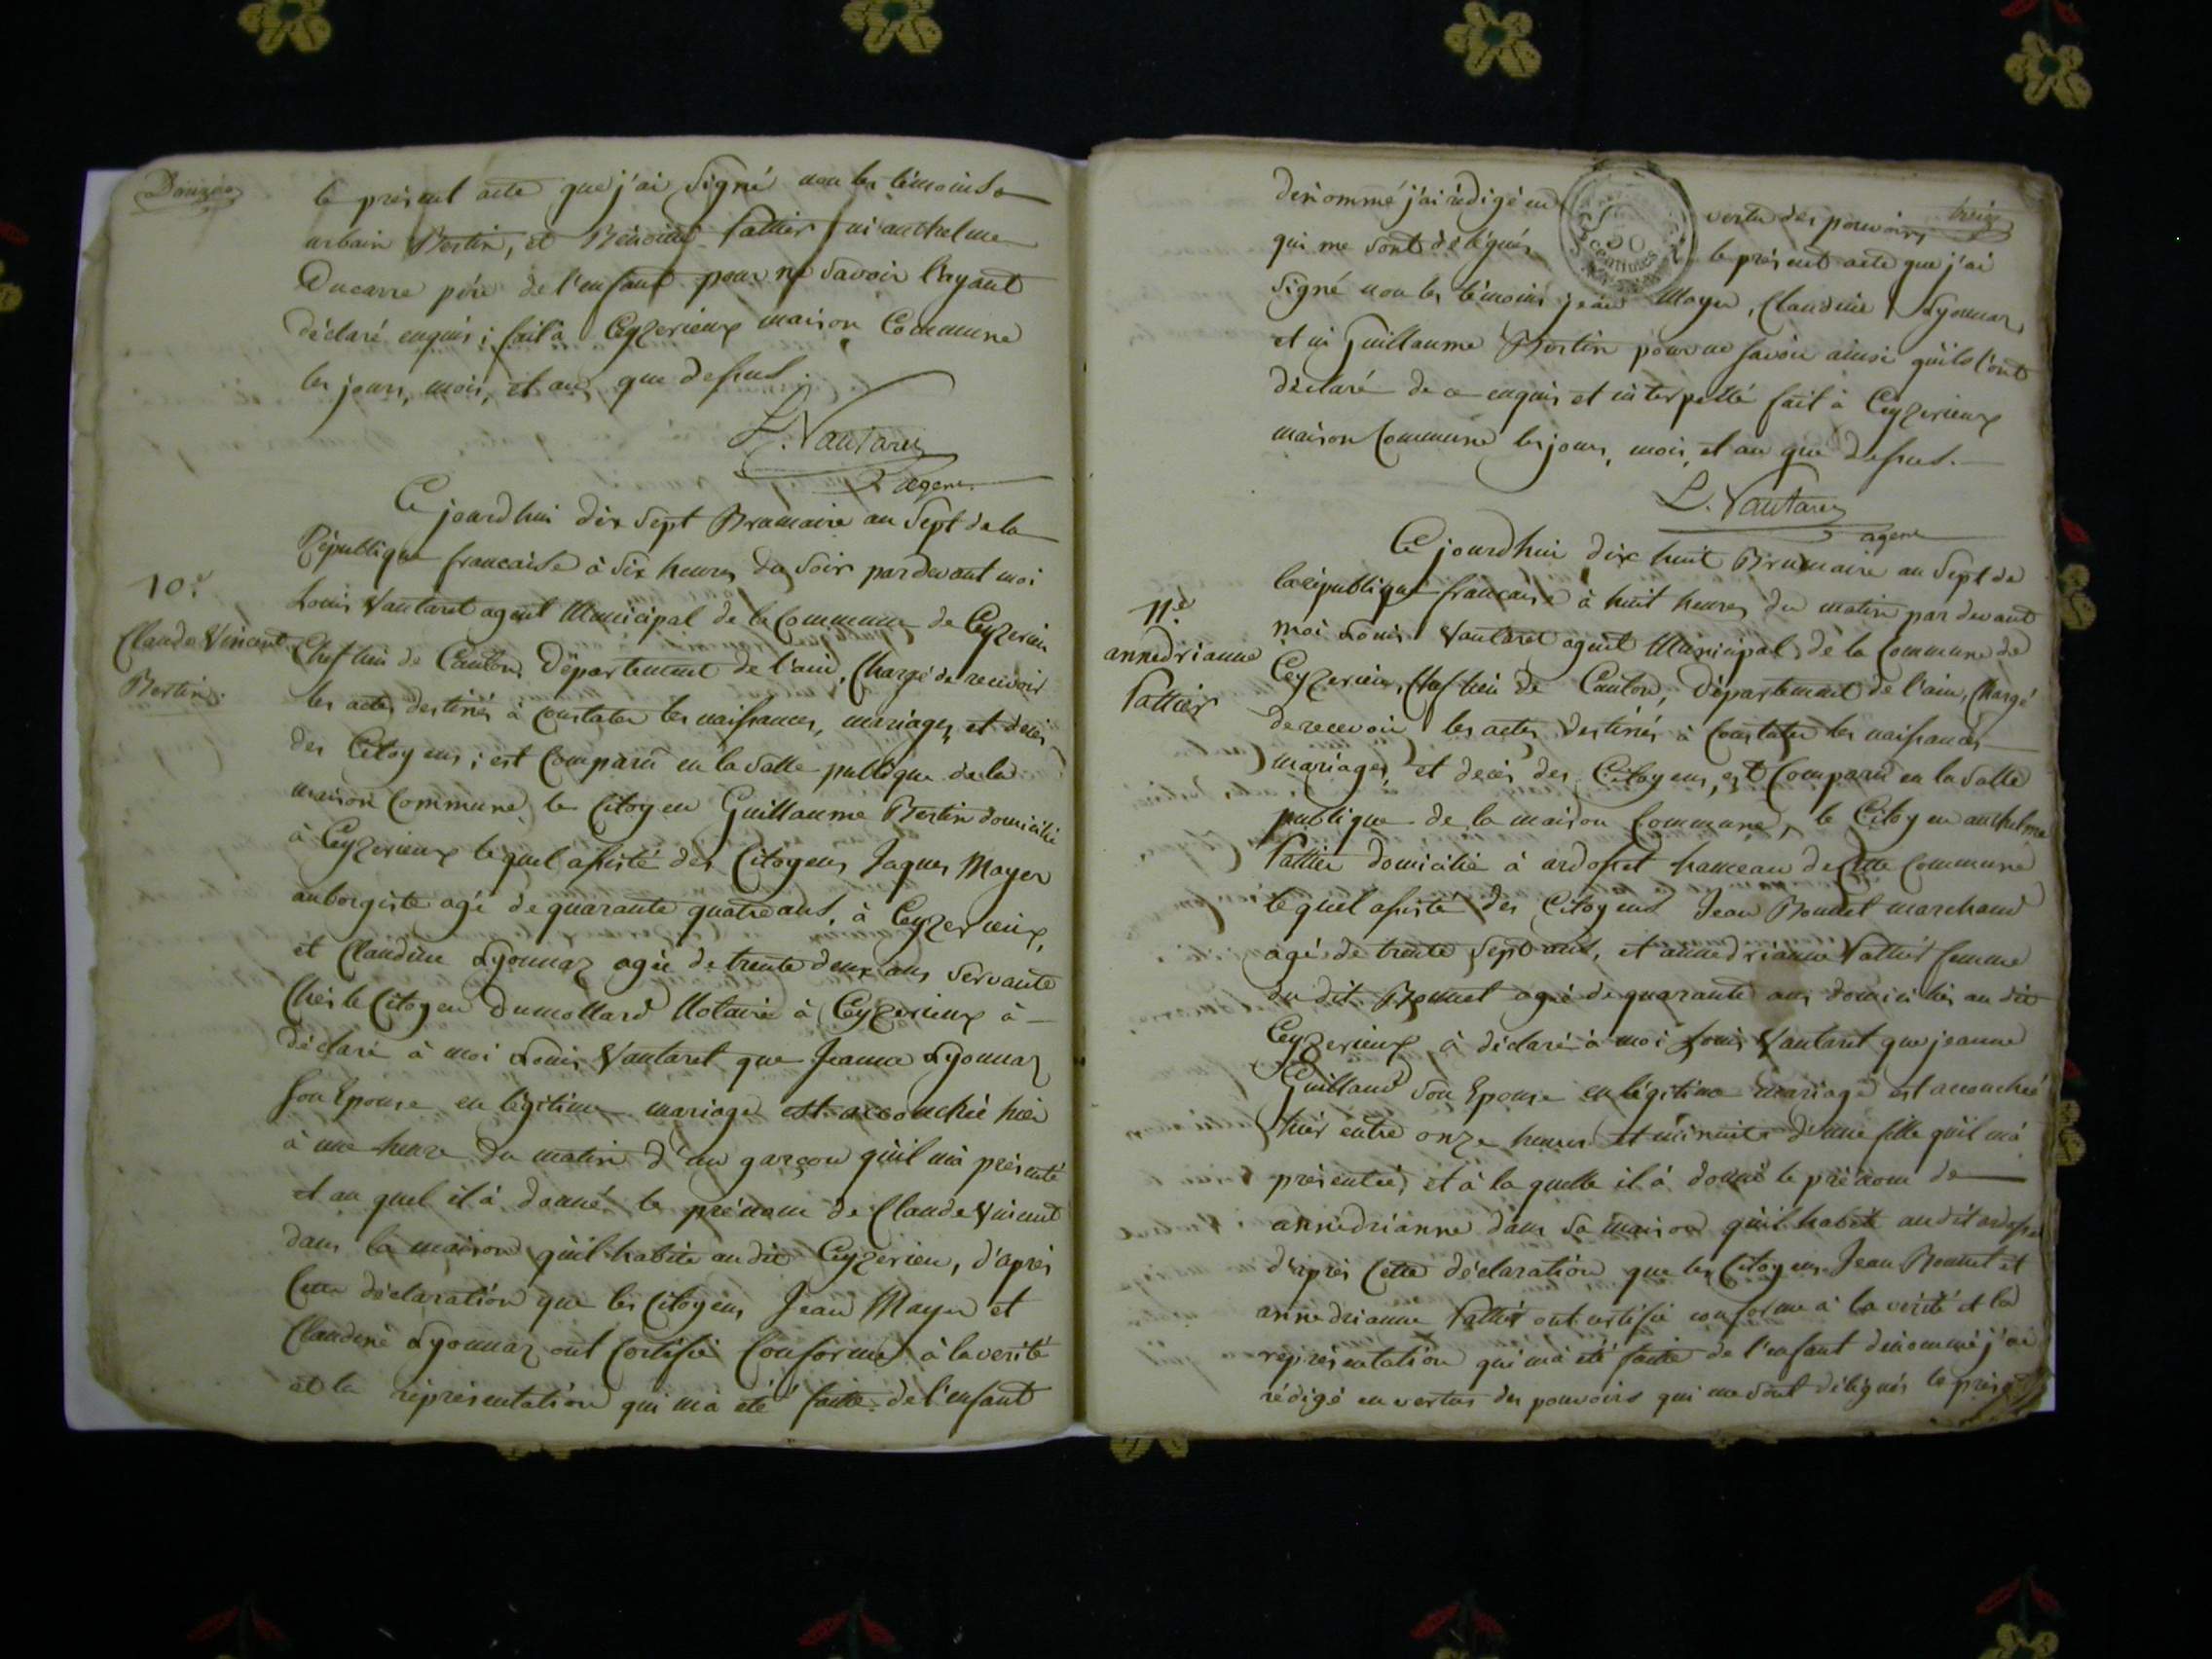 le présent acte que j'ai signé non les témoins
urbain Bertin, et Benoite Pattier ni anthelme
Ducarre père de l'enfant pour ne savoir l'ayant
déclaré enquis; fait à Ceyzerieux maison Commune
les jours, mois, et an que dessus.
L. Vautaret
agent
10.e
Claude Vincent
Bertin.
Ce jourdhui dix sept Brumaire an Sept de la
République francaise à six heures du soir pardevant moi
Louis Vautaret agent Municipal de la Commune de Ceyzerieu
Chef lieu de Canton Département de l'ain, Chargé de recevoir
les actes destinés à constater les naissances, mariages, et decès
des Citoyens; est Comparu en la salle publique de la
maison Commune, le Citoyen Guillaume Bertin domicilié
à Ceyzerieux lequel assisté des Citoyens Jaques Mayer
aubergiste agé de quarante quatre ans, à Ceyzerieux,
et Claudine Lyonnaz agée de trente deux ans servante
Chés le Citoyen Dumollard Notaire à Ceyzerieux à
déclaré à moi Louis Vautaret que Jeanne Lyonnaz
son Epouse en légitime mariage est accouchée hier
à une heure du matin d'un garçon qu'il m'a présenté
et au quel il à donné le prénom de Claude Vincent
dans la maison qu'il habite au dit Ceyzerieu, d'après
Cette déclaration que les Citoyens Jean Mayer et
Claudine Lyonnaz ont Certifié Conforme à la verité
et la représentation qui m'a été faite de l'enfant
treize
denommé j'ai rédigé en vertu des pouvoirs
qui me sont délégués le présent acte que j'ai
50 centimes
signé non les témoins jean Mayer, Claudine Lyonnaz
et ni Guillaume Bertin pour ne savoir ainsi qu'ils l'ont
déclaré de ce enquis et interpellé fait à Ceyzerieux
maison Commune les jours, mois, et an que dessus.
L. Vautaret
agent
11.e
annedrianne
Pattier
Ce jourdhui dix huit Brumaire an Sept de
la république francaise à huit heures du matin par devant
moi Louis Vautaret agent Municipal de la Commune de
Ceyzerieu, Chef lieu de Canton, Département de l'ain, Chargé
de recevoir les actes destinés à Constater les naissances
mariages, et decès des Citoyens, est Comparu en la salle
publique de la maison Commune, le Citoyen anthelme
Pattier domicilié à ardosset hameau de cette Commune
lequel assisté des Citoyens Jean Bonnet marchand
agé de trente sept ans, et annedrianne Pattier femme
du dit Bonnet agée de quarante ans domiciliés au dit
Ceyzerieux à déclaré à moi Louis Vautaret que jeanne
Guilland son Epouse en légitime mariage est accouchée
hier entre onze heures et minuit d'une fille qu'il m'à
présentée, et à la quelle il à donné le prénom de
annedrianne dans sa maison qu'il habite au dit ardosset
d'après Cette déclaration que les Citoyens Jean Bonnet et
annedrianne Pattier ont certifié conforme à la vérité et la
représentation qui m'à été faite de l'enfant denommé j'ai
rédigé en vertus des pouvoirs qui me sont délégués le présent